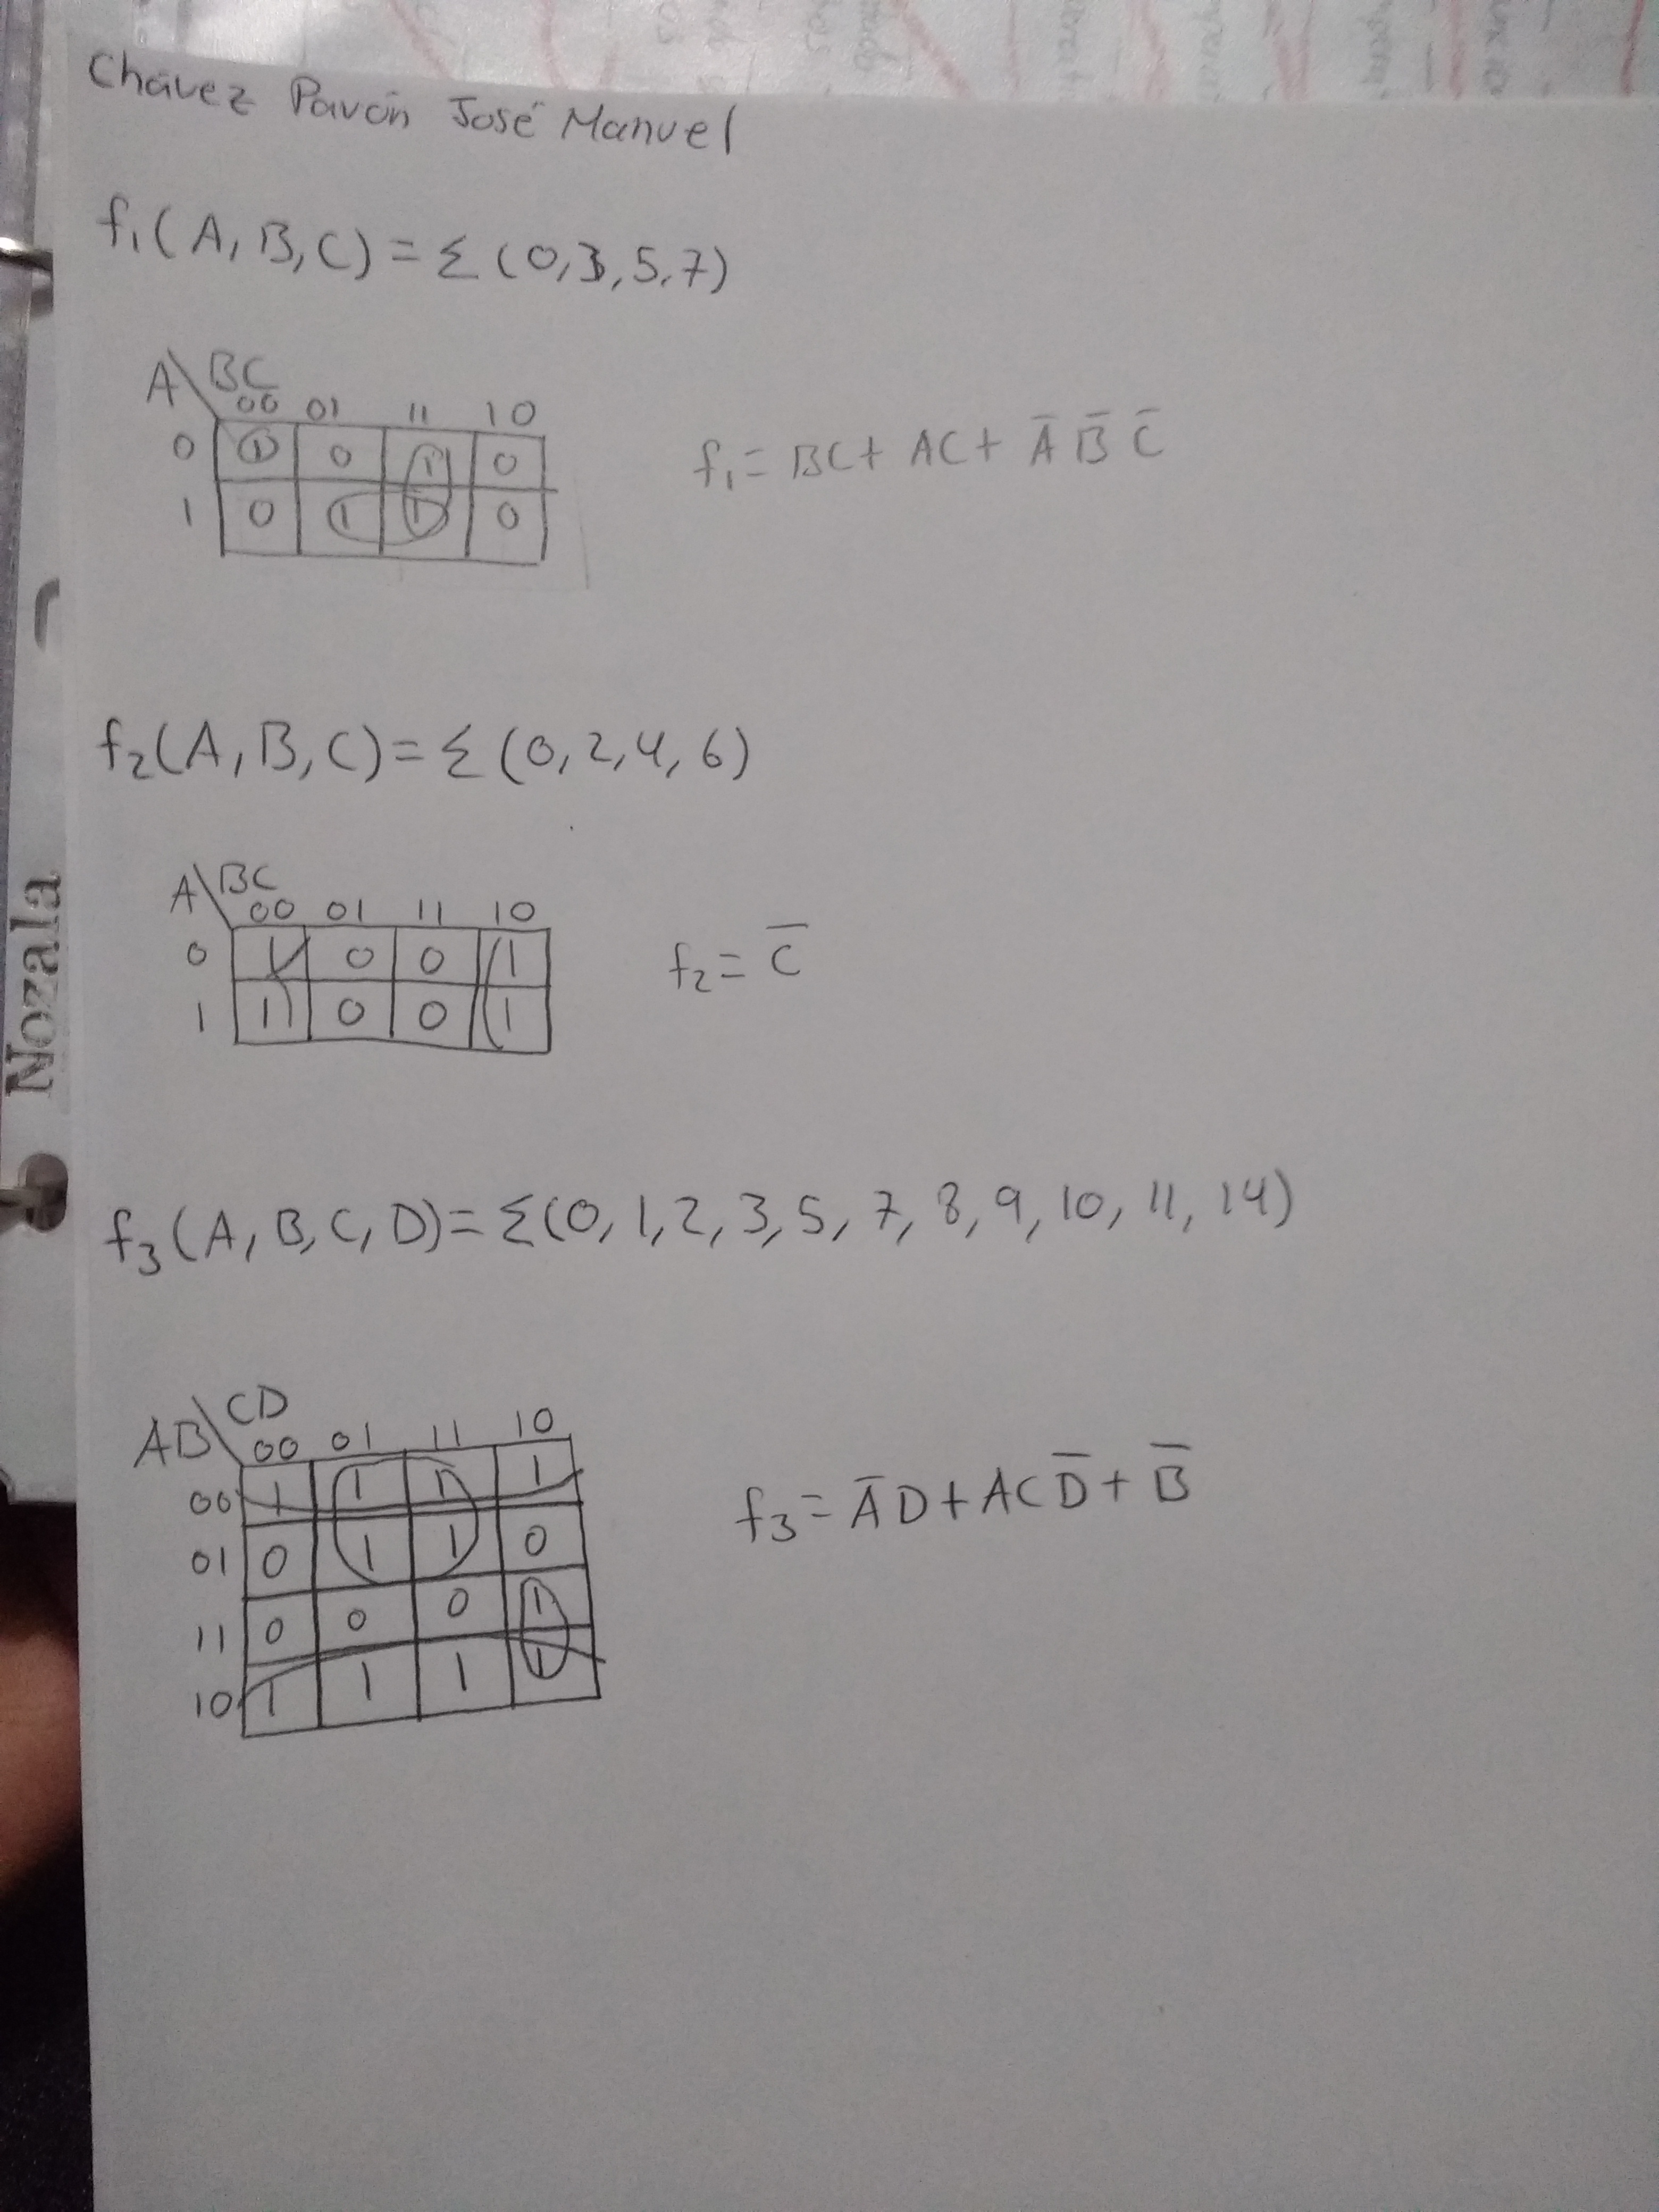 Chávez Pavón José Manuel
f₁(A,B,C)=Σ(0,3,5,7)
A\BC
00 01 11 10
0 1 0 1 0
1 0 1 1 0
f₁= BC+ AC+ A̅ B̅ C̅
f₂(A,B,C)=Σ(0,2,4,6)
A\BC
00 01 11 10
0 1 0 0 1
1 1 0 0 1
f₂= C̅
Nozala
f₃(A,B,C,D)=Σ(0,1,2,3,5,7,8,9,10,11,14)
AB\CD
00 01 11 10
00 1 1 1 1
01 0 1 1 0
11 0 0 0 1
10 1 1 1 1
f₃= A̅D+ACD̅+B̅